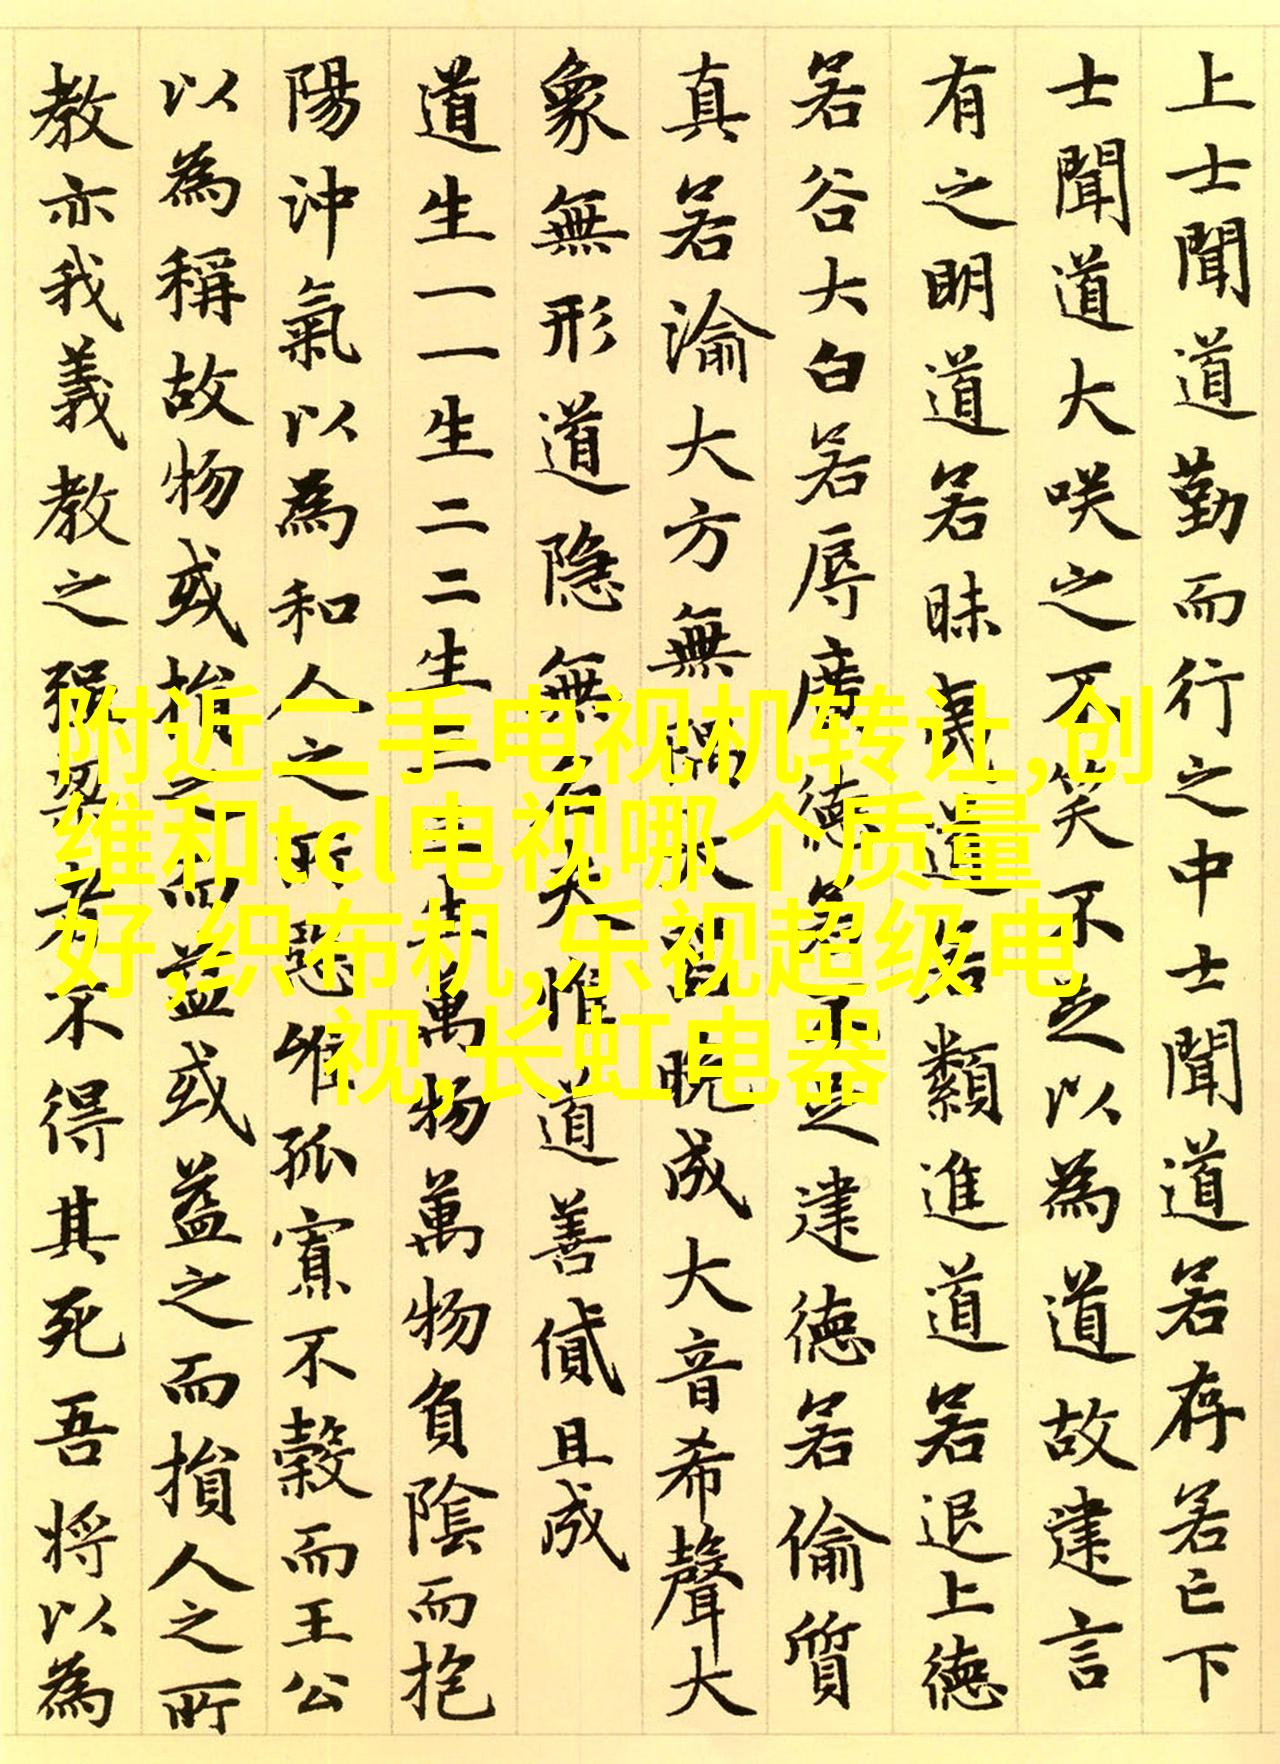 上士聞道勤而行之中士聞道若存若亡下
士聞道大咲之不笑不足以為道故建言
有之明道若昧夷道若類進道若退上徳
若谷大白若辱廣徳若不足建徳若偷質
真若渝大方無隅大器晚成大音希聲大
象無形道隐無名夫惟道善貸且成
道生一一生二二生三三生萬物萬物負陰而抱
陽沖氣以為和人之所惡惟孤寡不穀而王公
以為稱故物或損之而益或益之而損人之所
教亦我義教之强梁者不得其死吾将以為
附近二手电视机转让,创
维和tcl电视哪个质量
好,织布机,乐视超级电
视,长虹电器